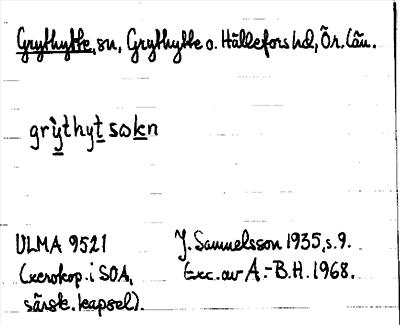 Grythytte, sn, Grythytte o. Hällefors hd, Ör. län.
grỳthyt sωkn
ULMA 9521
(xerokop. i SOA,
särsk. kapsel).
J. Samuelsson 1935, s. 9.
Exc. av A.-B.H. 1968.